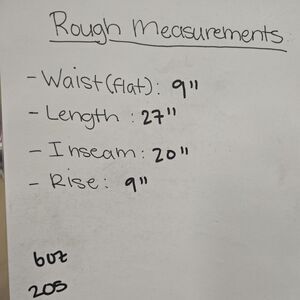 Rough Measurements
- Waist(flat): 9"
- Length: 27"
- Inseam: 20"
- Rise: 9"
6oz
205